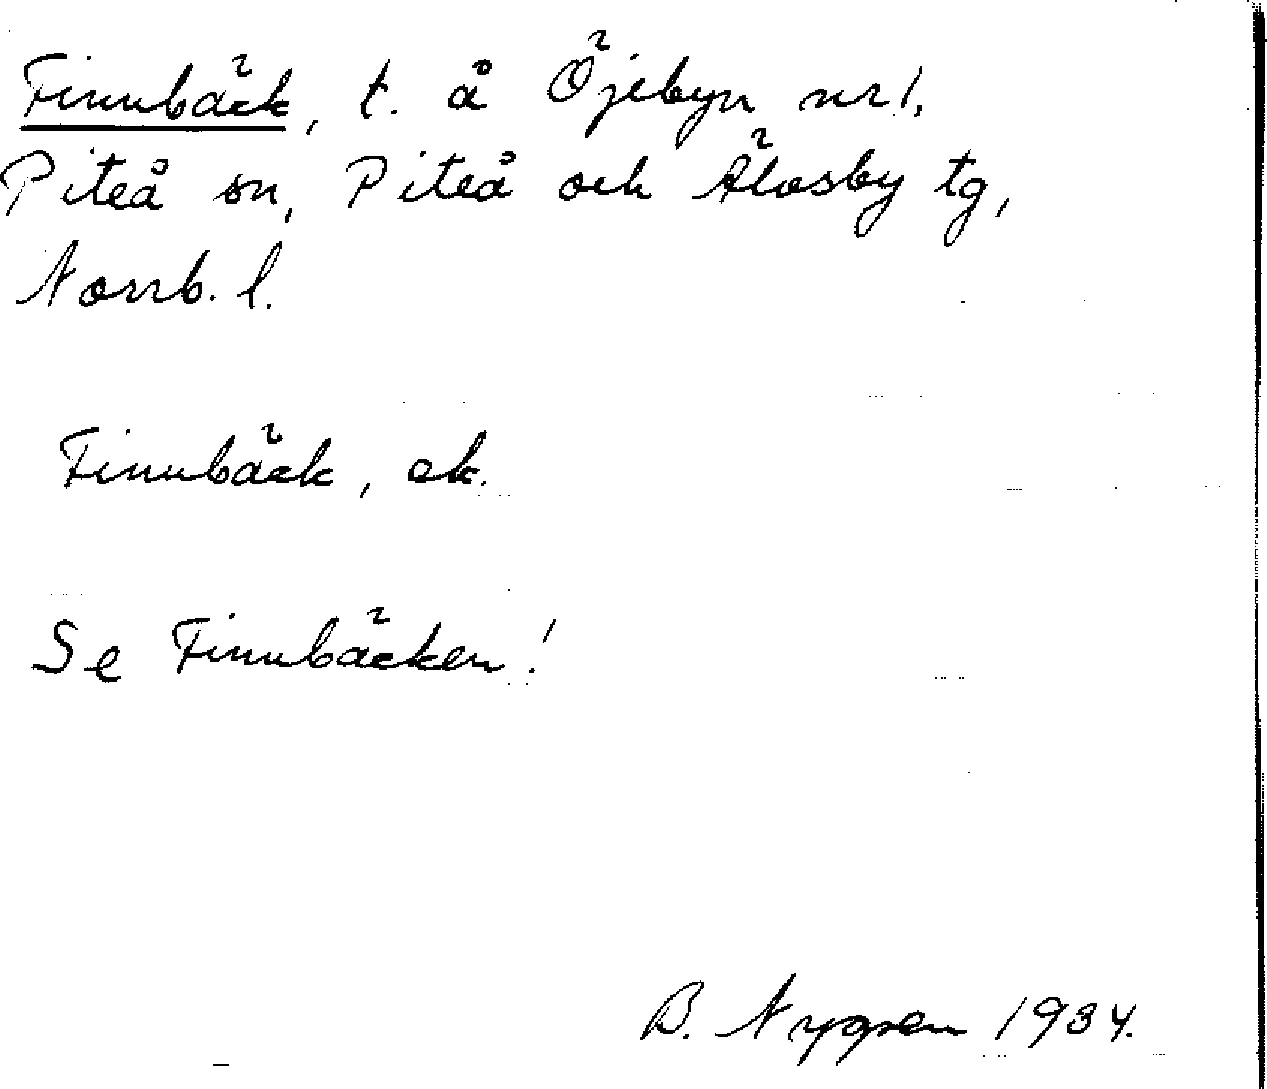 Finnbäck, t. å Öjebyn nr 1,
Piteå sn, Piteå och Älvsby tg,
Norrb. l.
Finnbäck, ek.
Se Finnbäcken!
B. Nygren 1934.